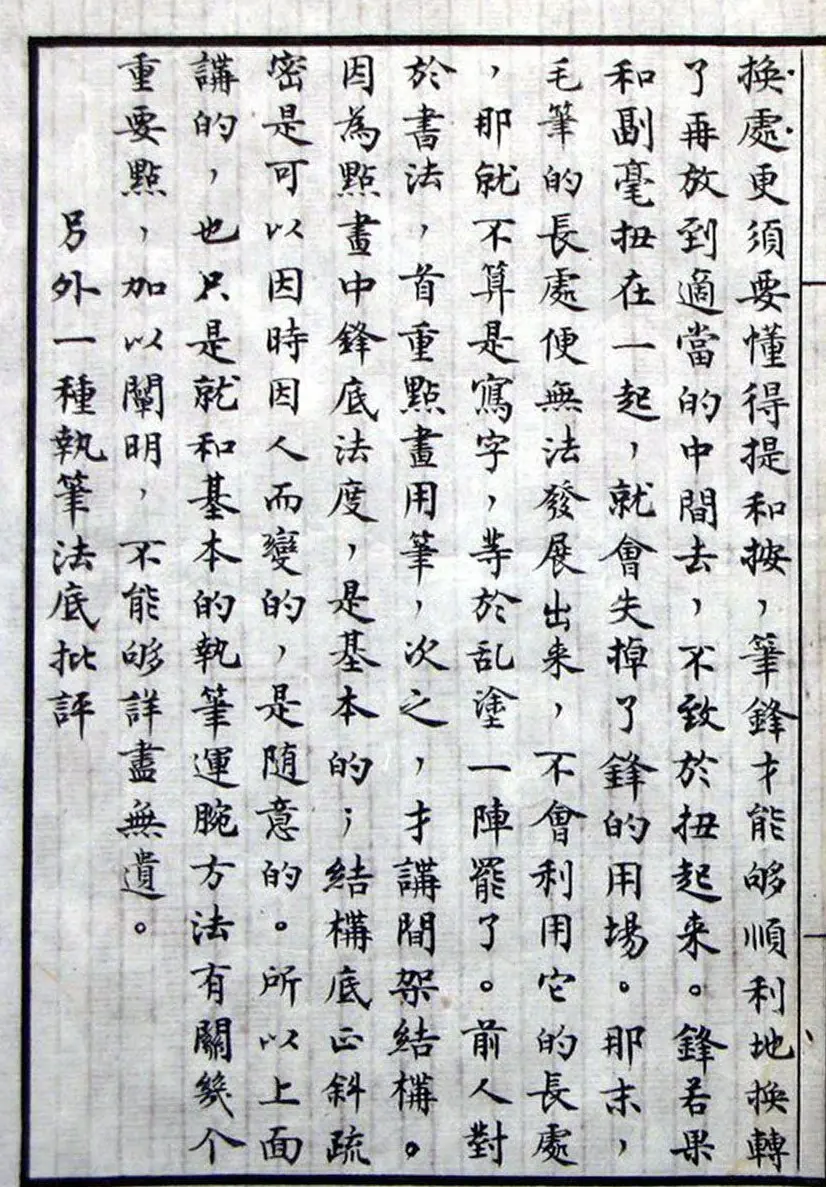 換處更須要懂得提和按，筆鋒才能够順利地換轉
了再放到適當的中間去，不致於扭起来。鋒若果
和副毫扭在一起，就會失掉了鋒的用場。那末，
毛筆的長處便無法發展出来，不會利用它的長處
，那就不算是寫字，等於乱塗一陣罷了。前人對
於書法，首重點畫用筆，次之，才講間架結構。
因為點畫中鋒底法度，是基本的；結構底正斜疏
密是可以因時因人而變的，是随意的。所以上面
講的，也只是就和基本的執筆運腕方法有關幾个
重要點，加以闡明，不能够詳盡無遺。
另外一種執筆法底批評